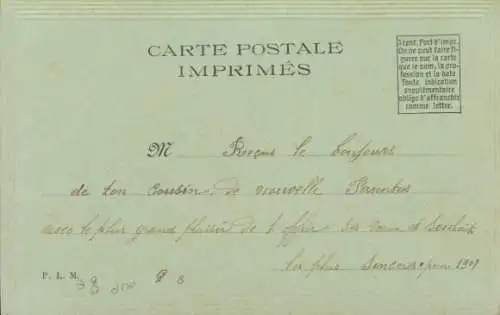 CARTE POSTALE
IMPRIMÉS
5 cent. Port d'impr.
On ne peut faire fi-
gurer sur la carte
que le nom, la pro-
fession et la date
Toute indication
supplémentaire
oblige d'affranchir
comme lettre.
M Reçois le bonjour
de ton cousin, de nouvelle
avec le plus grand plaisir de t'offrir
les plus sincères pour
P. L. M.